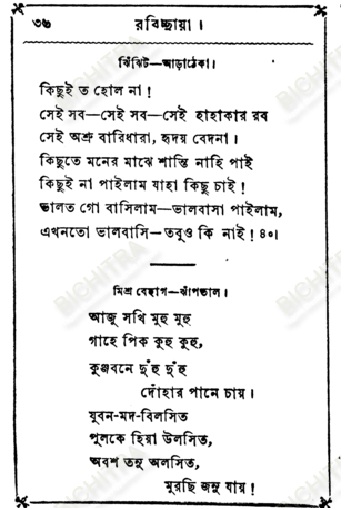 ৩৬ রবিচ্ছায়া।
ঝিঁঝিট—আড়াঠেকা।
কিছুই ত হোল না!
সেই সব—সেই সব—সেই হাহাকার রব
সেই অশ্রু বারিধারা, হৃদয় বেদনা।
কিছুতে মনের মাঝে শান্তি নাহি পাই
কিছুই না পাইলাম যাহা কিছু চাই!
ভালত গো বাসিলাম—ভালবাসা পাইলাম,
এখনতো ভালবাসি—তবুও কি নাই! ৪০।
মিশ্র বেহাগ—ঝাঁপতাল।
আজু সখি মুহু মুহু
গাহে পিক কুহু কুহু,
কুঞ্জবনে দুঁহু দুঁহু
দোঁহার পানে চায়।
যুবন-মদ-বিলসিত
পুলকে হিয়া উলসিত,
অবশ তনু অলসিত,
মূরছি জনু যায়!
BICHITRA
BICHITRA
BICHITRA
BICHITRA